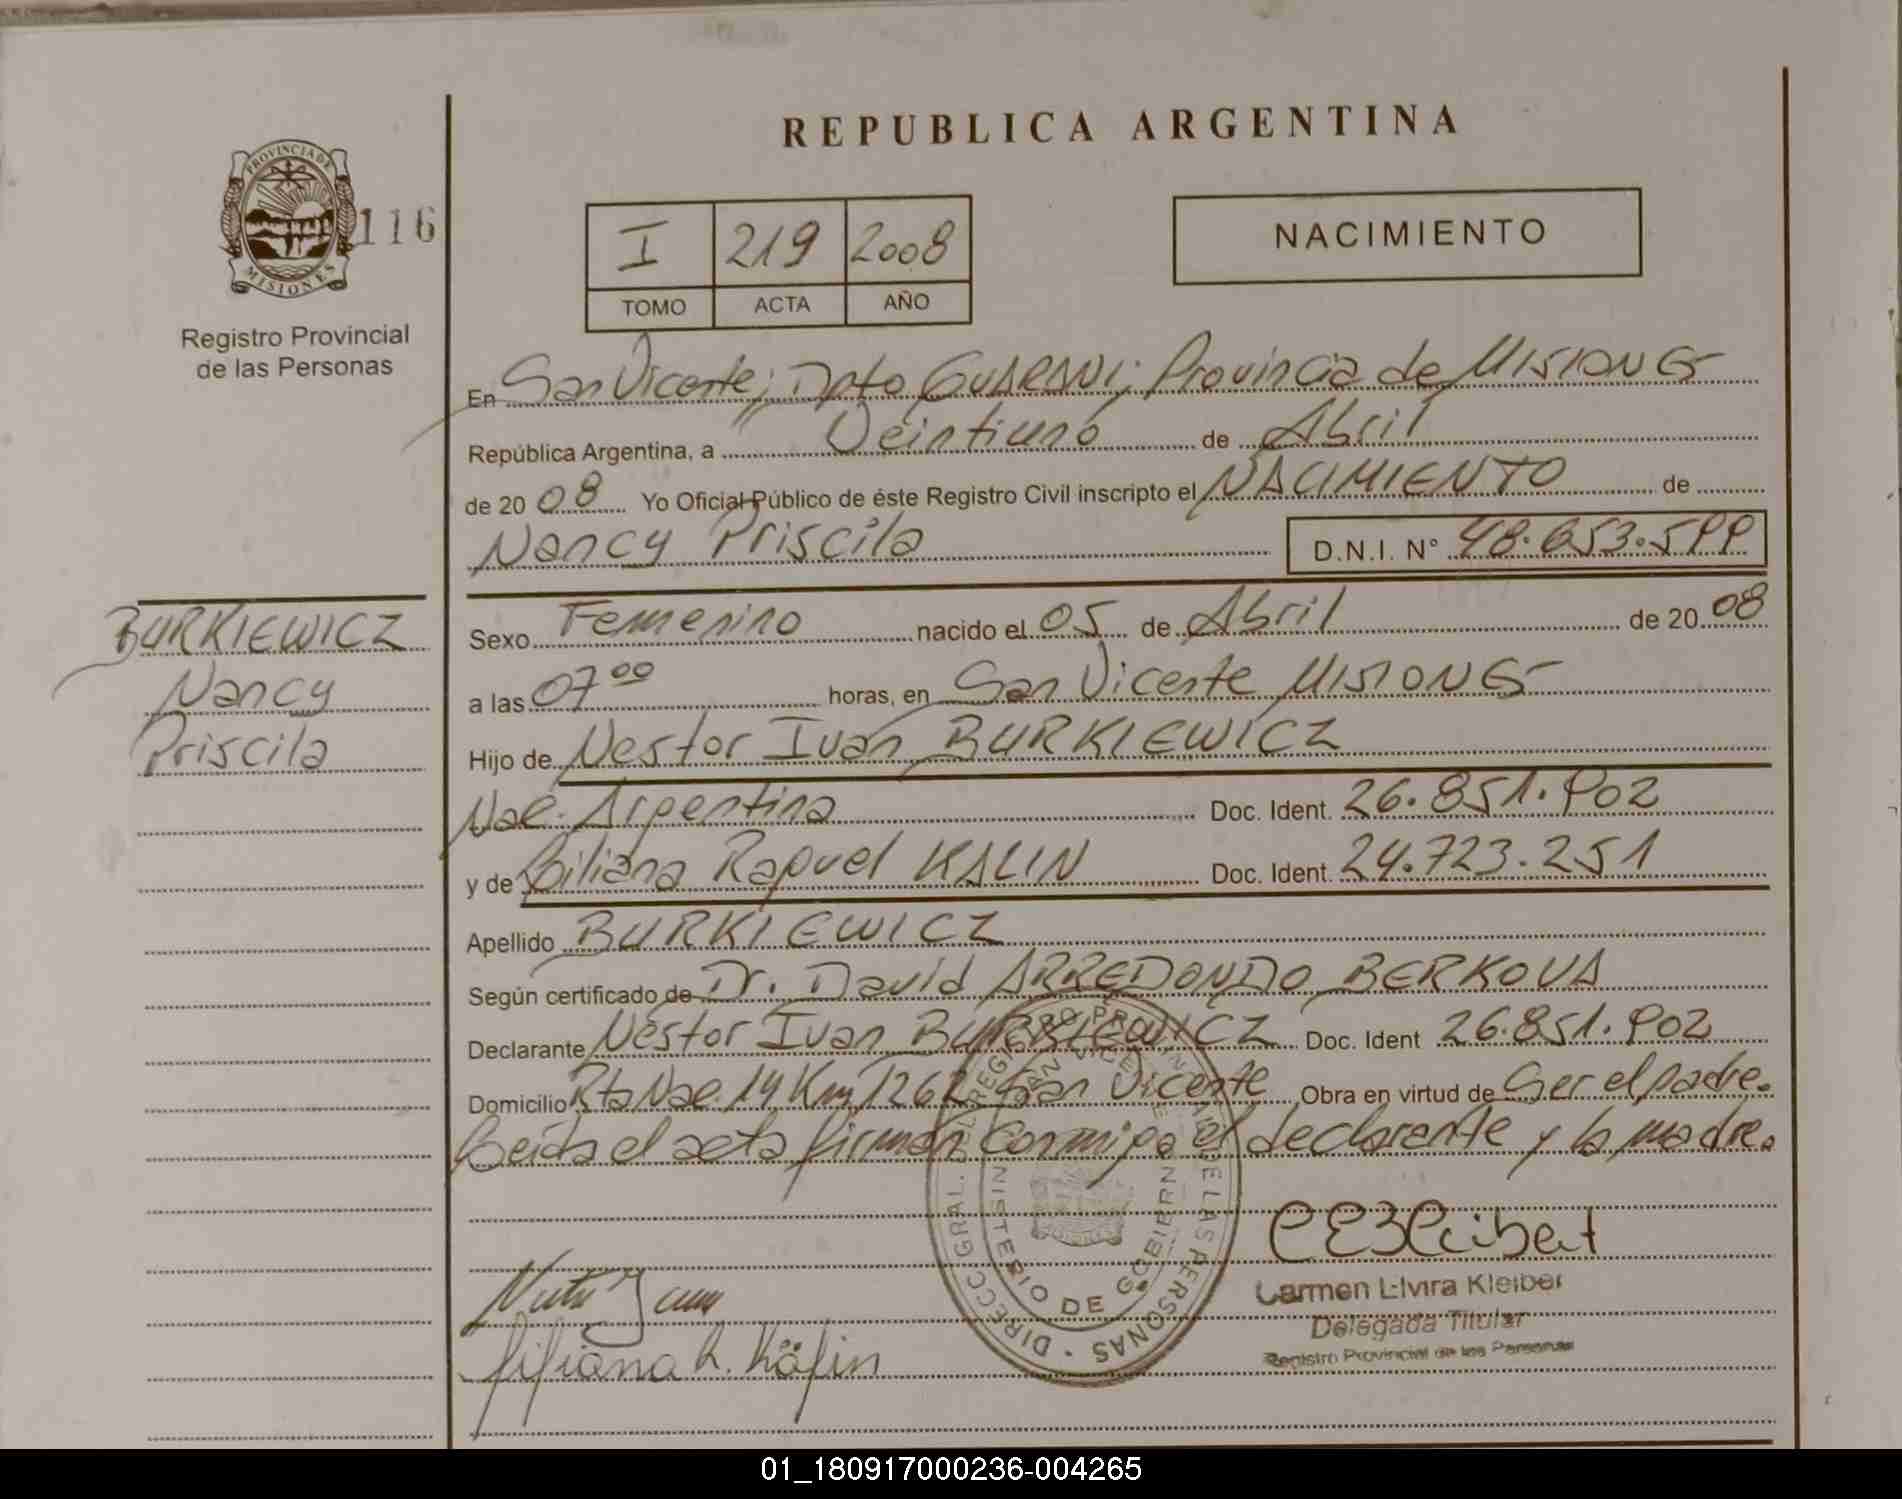 REPUBLICA ARGENTINA
PROVINCIA DE
MISIONES
116
Registro Provincial
de las Personas
I 219 2008
TOMO ACTA AÑO
NACIMIENTO
En San Vicente; Dpto GUARANI; Provincia de MISIONES
República Argentina, a Veintiuno de Abril
de 20 08 Yo Oficial Público de éste Registro Civil inscripto el NACIMIENTO de
Nancy Priscila D.N.I. N° 48.653.599
BURKIEWICZ
Nancy
Priscila
Sexo Femenino nacido el 05 de Abril de 20 08
a las 07 00 horas, en San Vicente MISIONES
Hijo de Nestor Ivan BURKIEWICZ
Nac. Argentina Doc. Ident. 26.851.902
y de Liliana Raquel KALIN Doc. Ident. 24.723.251
Apellido BURKIEWICZ
Según certificado de Dr. David ARREDONDO BERKOVA
Declarante Nestor Ivan BURKIEWICZ Doc. Ident 26.851.902
Domicilio Rta Nac. 14 Km 1262 San Vicente Obra en virtud de Ser el padre.
Leida el acta firman conmigo el declarante y la madre.
DIRECC. GRAL. DEL REGISTRO PROVINCIAL DE LAS PERSONAS
SAN VICENTE
MINISTERIO DE GOBIERNO
Carmen Elvira Kleiber
Delegada Titular
Registro Provincial de las Personas
Liliana R. Kälin
01_180917000236-004265